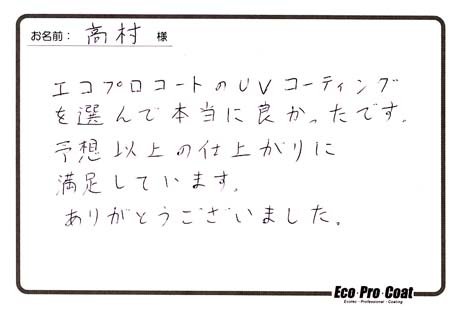 お名前: 高村 様
エコプロコートのUVコーティング
を選んで本当に良かったです。
予想以上の仕上がりに
満足しています。
ありがとうございました。
Eco・Pro・Coat
Ecotec・Professional・Coating